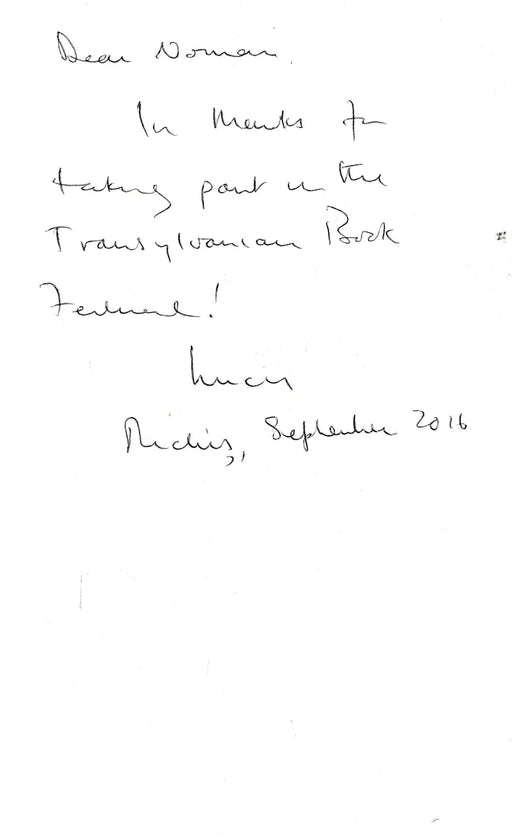 Dear Norman,
In thanks for
taking part in the
Transylvanian Book
Festival!
Lucy
Richiș, September 2016